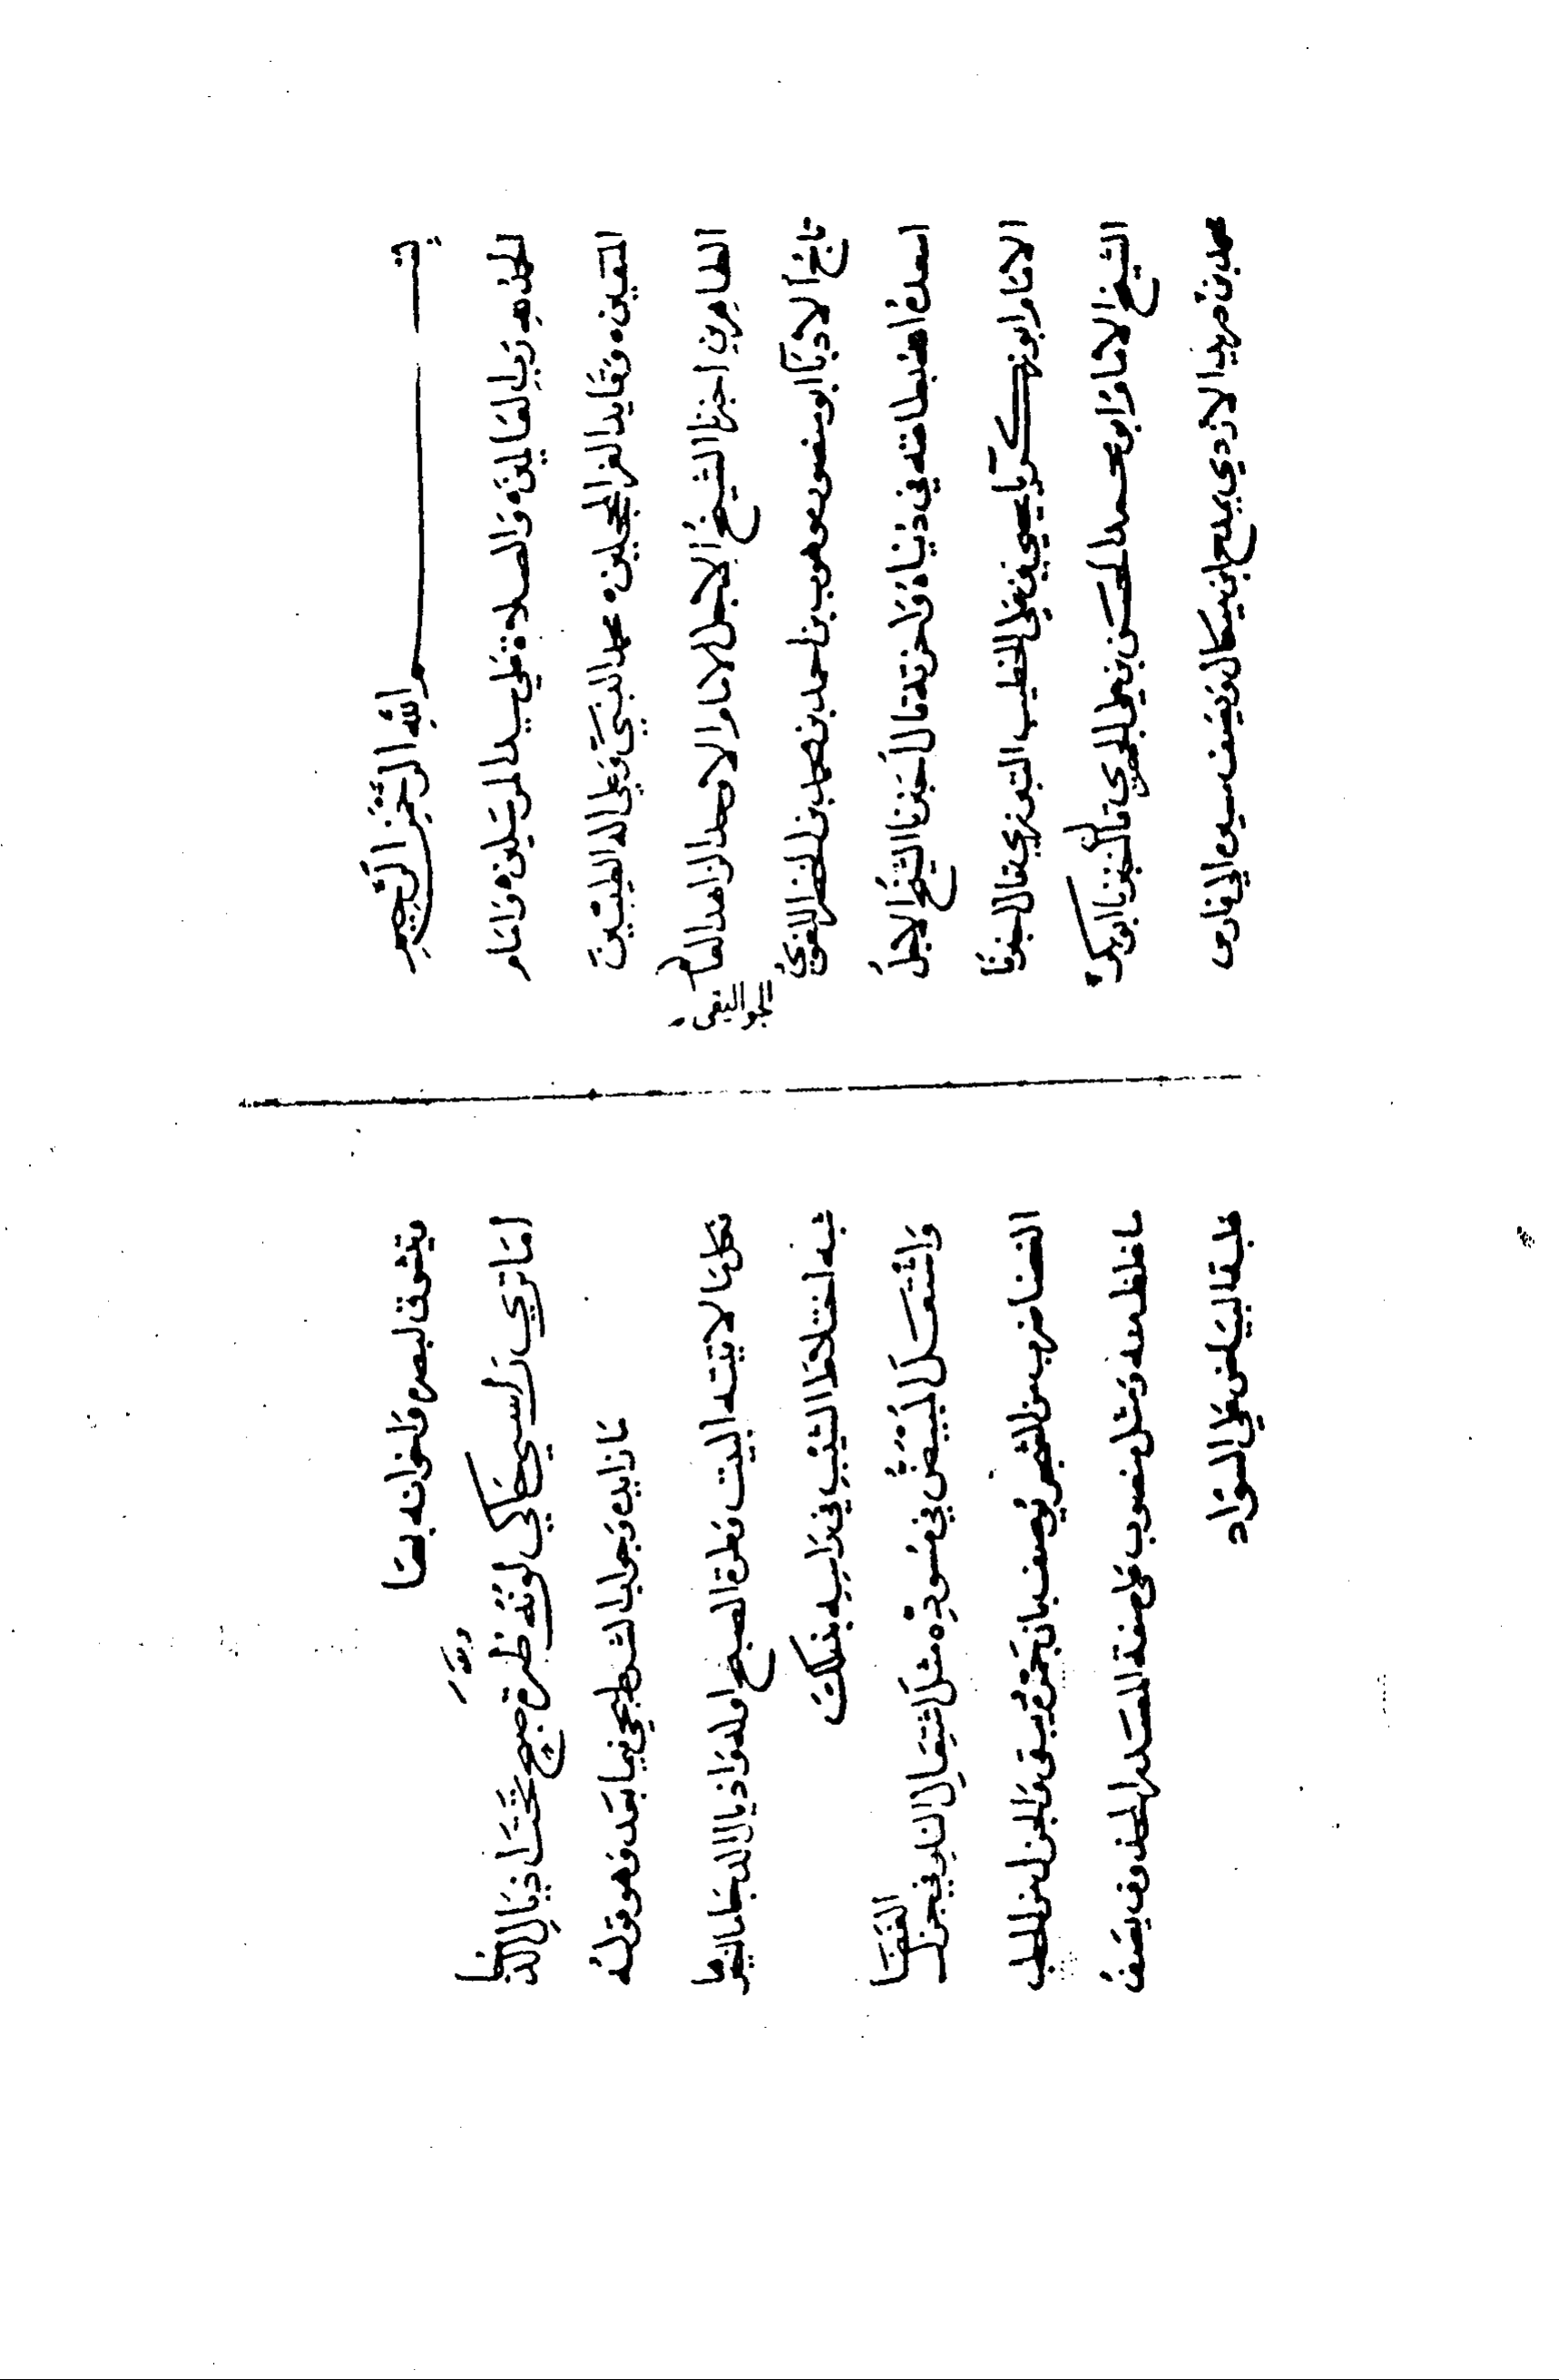 بسم الله الرحمن الرحيم
الحمد لله رب العالمين والصلاة على سيد المرسلين وامام
المتقين وقايد الغر المحجلين محمد النبي وعلى اله الطيبين
الطاهرين اخبرنا الشيخ الاجل الامام الاوحد الزاهد العالم
تاج الادبا ابو منصور موهوب بن احمد بن محمد بن الخضر اللغوي
اسعده الله بطاعته في دنياه واخرته قال اخبرنا الشيخ الاجل
الامام ابو زكريا يحيى بن علي الخطيب التبريزي قال اخبرنا
الشيخ الامام ابو محمد الحسن بن علي الجوهري قال اخبرنا ابو بكر
محمد بن دريد الازدي يمدح ابن ميكال ويصف مسيره الى فارس
يتشوق لبصره واخوانه بها
اما تري راسي حاكي لونه طرة صبح تحت اذيال الدجا
ما زايده وجواب الشرط يجي فيما بعد وهو قوله
فكلما لاقيته البيت وطرة الصبح اوله واذيال الدجا ماخيرها
شبه اختلاط الشيب في راسه بذلك
واشتعل المبيض في مسوده مثل اشتعال النار في جزل الغضا
الغضا ضرب من الشجر يوصف بان جمره يبقى والجزل من الحطب
ما غلظ منه ومثل منصوب على صفة المصدر المحذوف يصف
غلبة البياض على السواد